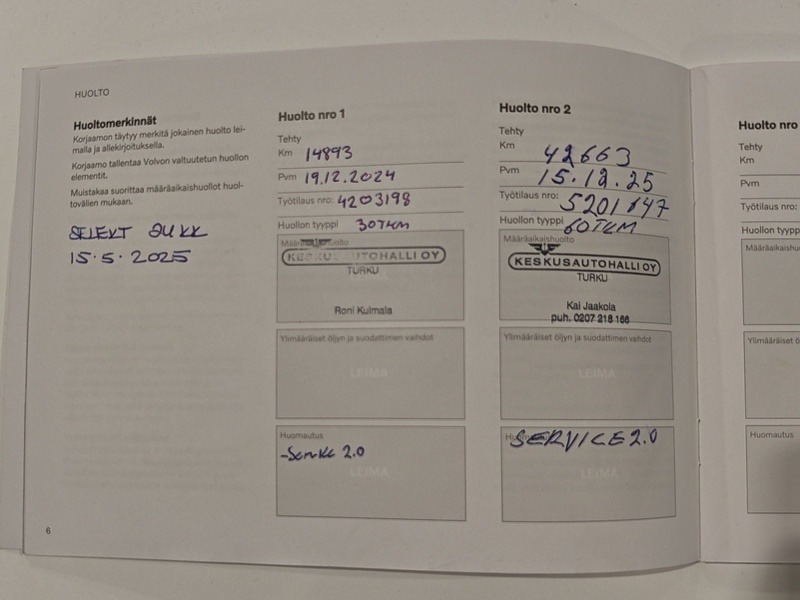 HUOLTO
Huoltomerkinnät
Korjaamon täytyy merkitä jokainen huolto lei-
malla ja allekirjoituksella.
Korjaamo tallentaa Volvon valtuutetun huollon
elementit.
Muistakaa suorittaa määräaikaishuollot huol-
tovälien mukaan.
SELEKT 24 KK
15.5.2025
6
Huolto nro 1
Tehty
Km 14893
Pvm 19.12.2024
Työtilaus nro: 4203198
Huollon tyyppi 30TKM
Määräaikaishuolto
KESKUSAUTOHALLI OY
TURKU
Roni Kulmala
Ylimääräiset öljyn ja suodattimen vaihdot
LEIMA
Huomautus
-Service 2.0
LEIMA
Huolto nro 2
Tehty
Km 42663
Pvm 15.12.25
Työtilaus nro: 5201847
Huollon tyyppi 60TKM
Määräaikaishuolto
KESKUSAUTOHALLI OY
TURKU
Kai Jaakola
puh. 0207 218 166
Ylimääräiset öljyn ja suodattimen vaihdot
LEIMA
SERVICE 2.0
LEIMA
Huolto nro
Tehty
Km
Pvm
Työtilaus nro:
Huollon tyypp
Määräaikaishu
Ylimääräiset ö
Huomautus